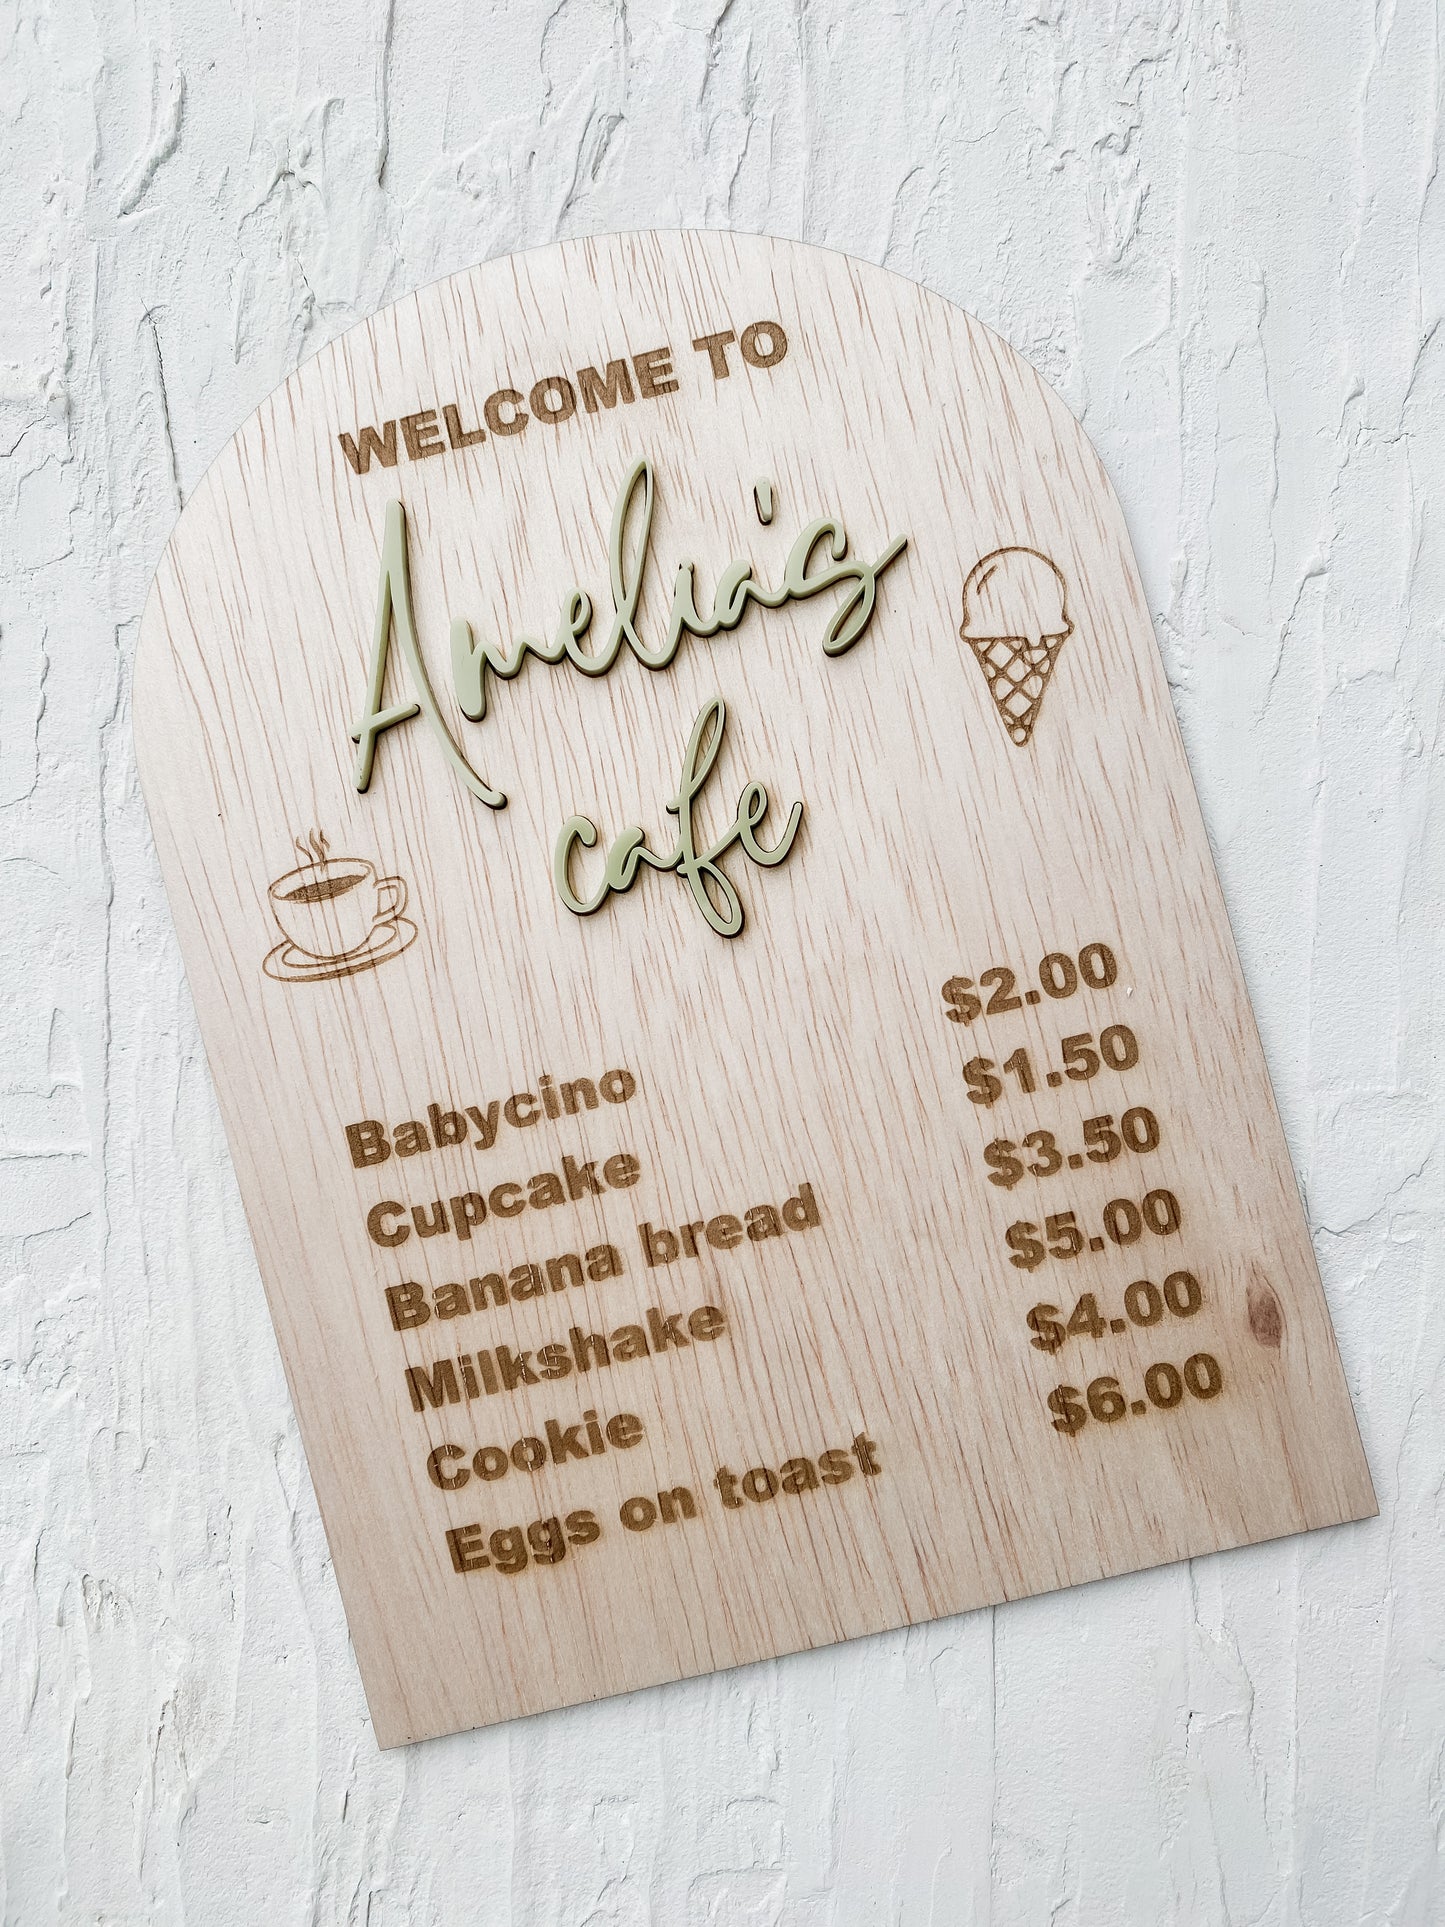 WELCOME TO
Amelia's
cafe
Babycino $2.00
Cupcake $1.50
Banana bread $3.50
Milkshake $5.00
Cookie $4.00
Eggs on toast $6.00